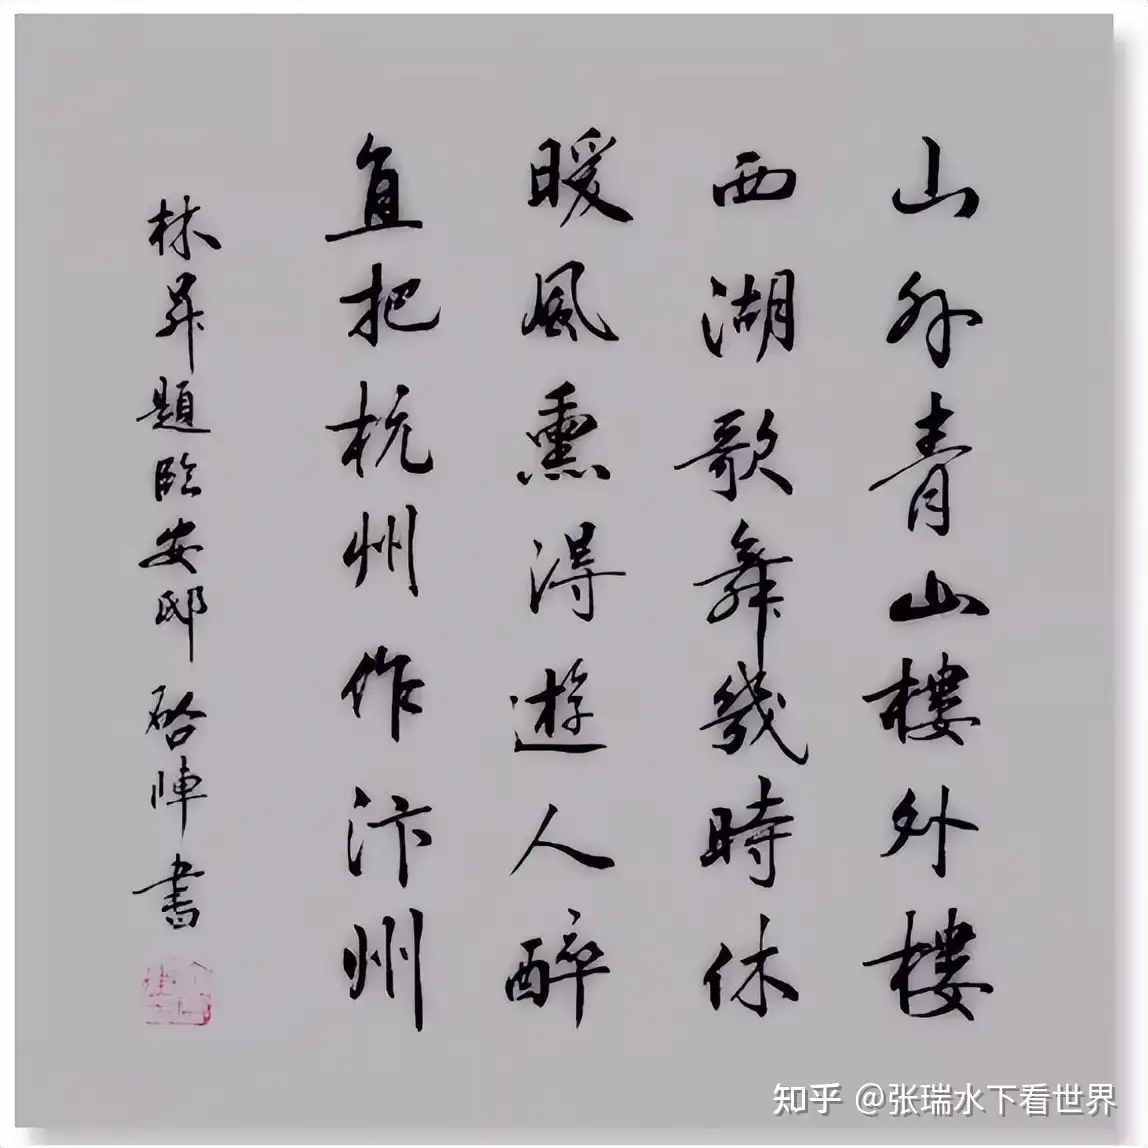 山外青山樓外樓
西湖歌舞幾時休
暖風熏得遊人醉
直把杭州作汴州
林昇題臨安邸 書
知乎 @张瑞水下看世界